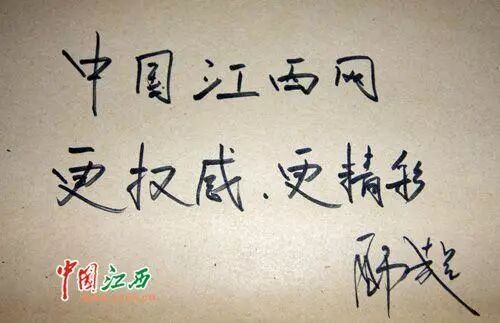 中国江西网
更权威、更精彩
中国江西